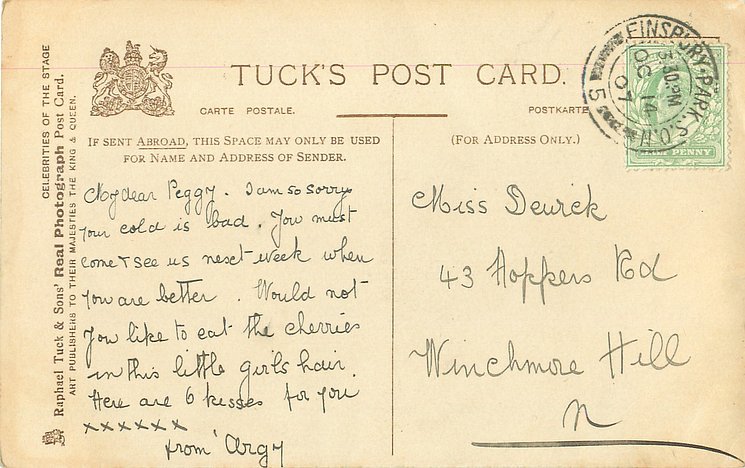 TUCK'S POST CARD.
CARTE POSTALE.
POSTKARTE
IF SENT ABROAD, THIS SPACE MAY ONLY BE USED
FOR NAME AND ADDRESS OF SENDER.
(FOR ADDRESS ONLY.)
CELEBRITIES OF THE STAGE
Raphael Tuck & Sons' Real Photograph Post Card.
ART PUBLISHERS TO THEIR MAJESTIES THE KING & QUEEN.
My dear Peggy. I am so sorry
your cold is bad. You must
come & see us next week when
you are better. Would not
you like to eat the cherries
in this little girls hair.
Here are 6 kisses for you
xxxxxx
from Argy
Miss Dewick
43 Hoppers Rd
Winchmore Hill
N
FINSBURY PARK. S.O.N.
5
OC 14
07
PENNY